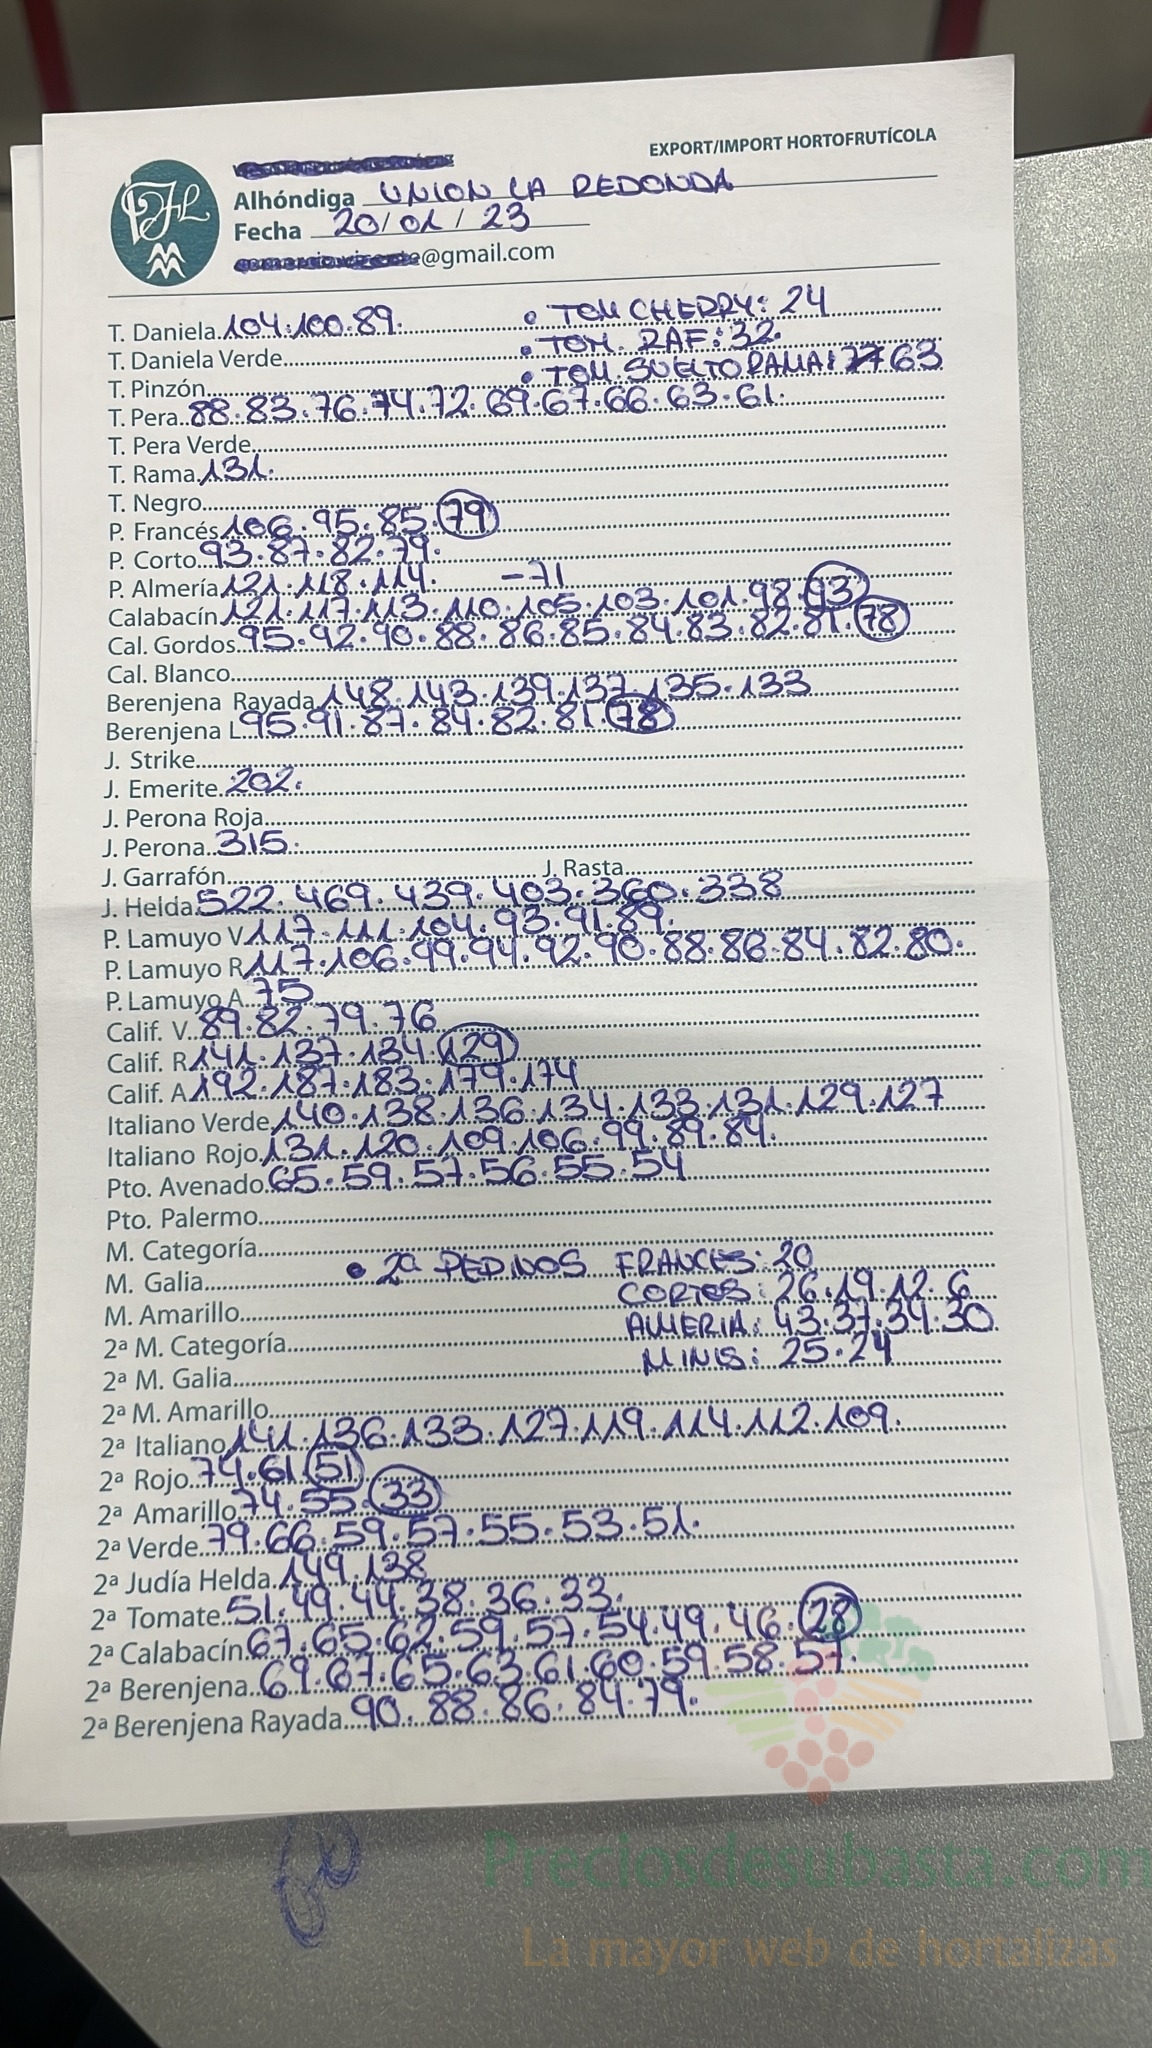 EXPORT/IMPORT HORTOFRUTÍCOLA
Alhóndiga UNION LA REDONDA
Fecha 20/01/23
@gmail.com
T. Daniela 104.100.89. • TOM CHERRY: 24
T. Daniela Verde • TOM. RAF: 32.
T. Pinzón • TOM. SUELTO RAMA: 63
T. Pera 88.83.76.74.72.69.67.66.63.61.
T. Pera Verde
T. Rama 131.
T. Negro
P. Francés 106.95.85.79
P. Corto 93.87.82.79.
P. Almería 121.118.114. -71
Calabacín 121.117.113.110.105.103.101.98.93
Cal. Gordos 95.92.90.88.86.85.84.83.82.81.78
Cal. Blanco
Berenjena Rayada 148.143.139.137.135.133
Berenjena L. 95.91.87.84.82.81.78
J. Strike
J. Emerite 202.
J. Perona Roja
J. Perona 315.
J. Garrafón J. Rasta
J. Helda 522.469.439.403.360.338
P. Lamuyo V 117.111.104.93.91.89.
P. Lamuyo R 117.106.99.94.92.90.88.86.84.82.80.
P. Lamuyo A. 75
Calif. V. 89.82.79.76
Calif. R 141.137.134.129
Calif. A 192.187.183.179.174
Italiano Verde 140.138.136.134.133.131.129.127
Italiano Rojo 131.120.109.106.99.89.84.
Pto. Avenado 65.59.57.56.55.54
Pto. Palermo
M. Categoría • 2ª PEPINOS FRANCES: 20
M. Galia CORTOS: 26.19.12.6
M. Amarillo ALMERIA: 43.37.34.30
2ª M. Categoría MINIS: 25.24
2ª M. Galia
2ª M. Amarillo
2ª Italiano 141.136.133.127.119.114.112.109.
2ª Rojo 74.61.51
2ª Amarillo 74.55.33
2ª Verde 79.66.59.57.55.53.51.
2ª Judía Helda 149.138
2ª Tomate 51.49.44.38.36.33.
2ª Calabacín 67.65.62.59.57.54.49.46.28
2ª Berenjena 69.67.65.63.61.60.59.58.57.
2ª Berenjena Rayada 90.88.86.84.79.
Preciosdesubasta.com
La mayor web de hortalizas